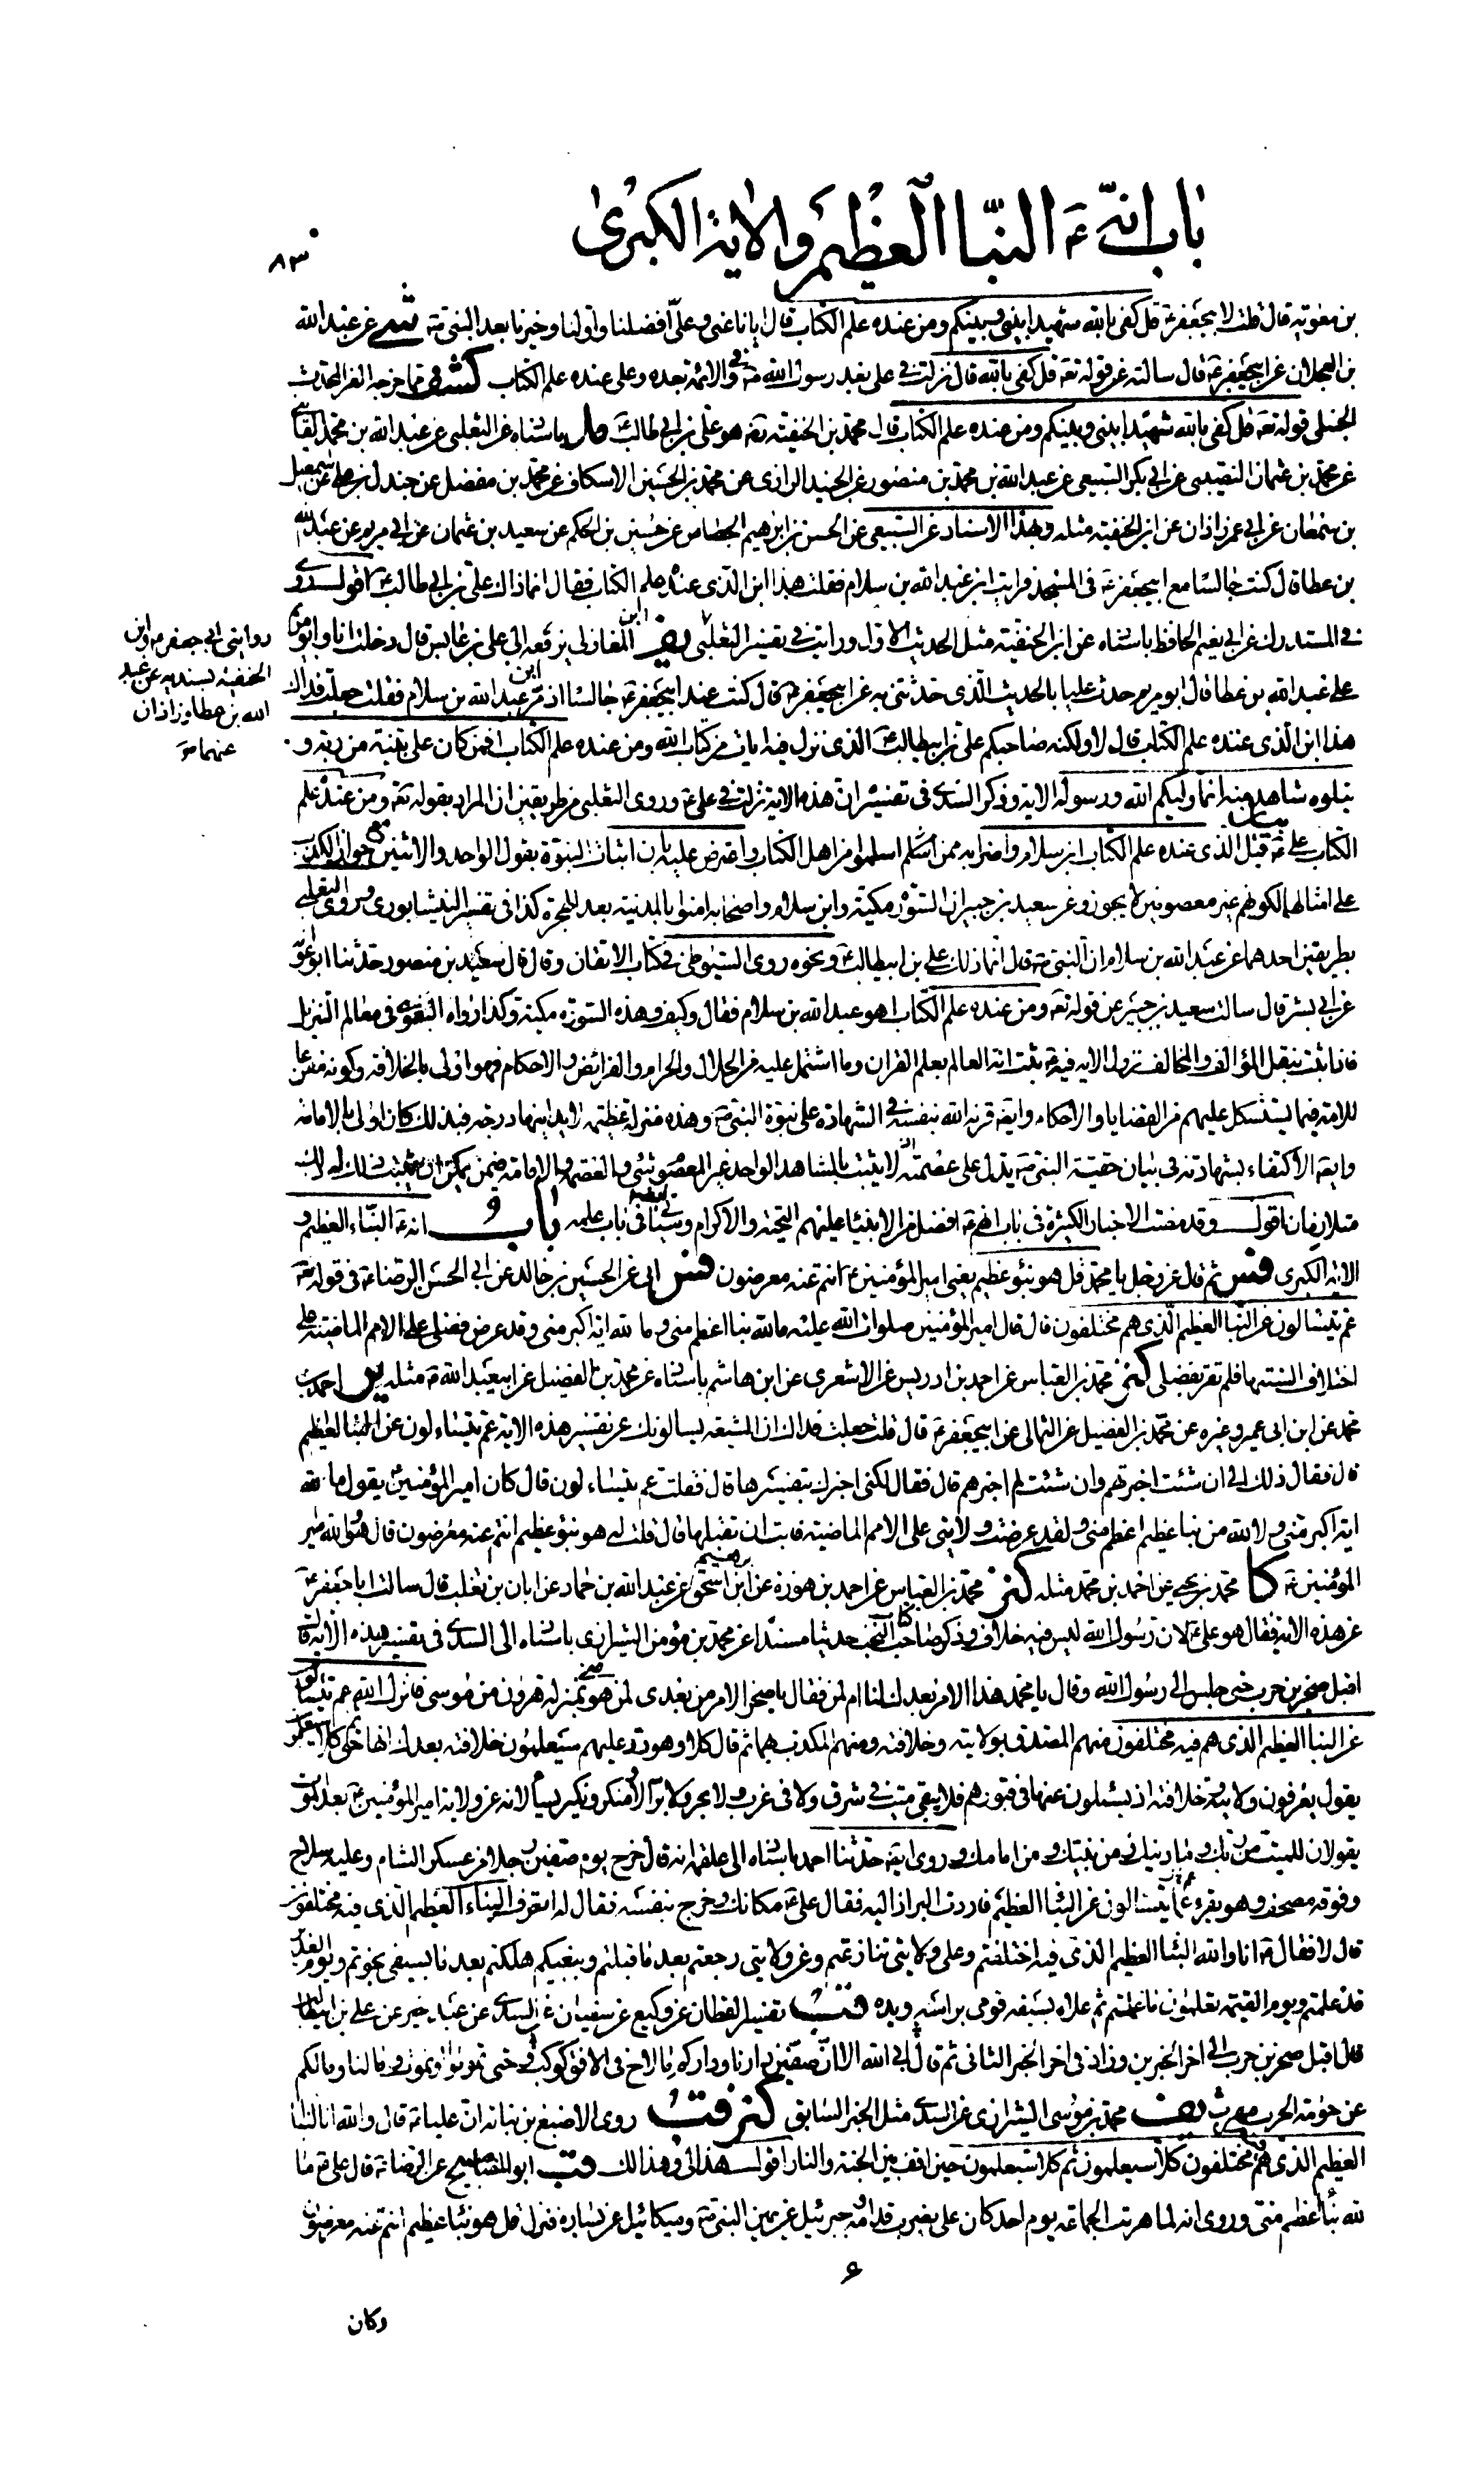 باب انّه ع النبّا العظيم والاية الكبرى
٨٣
بن معوية قال قلت لابيجعفر ع قل كفى بالله شهيدا بينى وبينكم ومن عنده علم الكتاب قال ايانا عنى وعلىّ افضلنا واولنا وخيرنا بعد النبى ص شى عن عبد الله
بن العجلان عن ابيجعفر ع قال سالته عن قوله تعه قل كفى بالله قال نزلت فى على بعد رسول الله ص وفى الائمة بعده وعلى عنده علم الكتاب كشف مما خرجه العز المحدث
الحنبلى قوله تعه قل كفى بالله شهيدا بينى وبينكم ومن عنده علم الكتاب قال محمد بن الحنفية رضه هو على بن ابى طالب ع مد باسناه عن الثعلبى عن عبد الله بن محمد القاينى
عن محمد بن عثمان النصيبى عن ابى بكر السبيعى عن عبد الله بن محمد بن منصور عن الجنيد الرازى عن محمد بن الحسين الاسكاف عن محمد بن مفضل عن جندل بن على عن اسمعيل
بن سمعان عن ابى عمر زاذان عن ابن الحنفية مثله وبهذا الاسناد عن السبيعى عن الحسن بن ابرهيم الجصاص عن حسين بن الحكم عن سعيد بن عثمان عن ابى مريم عن عبد الله
بن عطا قال كنت جالسا مع ابيجعفر ع فى المسجد فرايت ابن عبد الله بن سلام فقلت هذا ابن الذى عنده علم الكتاب فقال انما ذاك على بن ابى طالب ع اقول روى
فى المستدرك عن ابى نعيم الحافظ باسناه عن ابن الحنفية مثل الحديث الاول ورايت فى تفسير الثعلبى يف ابن المغازلى يرفعه الى على بن عابس قال دخلت انا وابو مريم
على عبد الله بن عطا قال ابو مريم حدث عليا بالحديث الذى حدثتنى به عن ابيجعفر ع قال كنت عند ابيجعفر ع جالسا اذ مر ابن عبد الله بن سلام فقلت جعلت فداك
هذا ابن الذى عنده علم الكتاب قال لا ولكنه صاحبكم على بن ابيطالب ع الذى نزل فيه ايات من كتاب الله ومن عنده علم الكتاب افمن كان على بينة من ربه و
يتلوه شاهد منه انما وليكم الله ورسوله الاية وذكر السدى فى تفسيره ان هذه الاية نزلت فى على ع وروى الثعلبى من طريقين ان المراد بقوله تعه ومن عنده علم
الكتاب على ع بيان قيل الذى عنده علم الكتاب ابن سلام واضرابه ممن اسلم اسلموا من اهل الكتاب واعترض عليه بان اثبات النبوة بقول الواحد والاثنين مع جواز الكذب
على امثالهما لكونهم غير معصومين لا يجوز وعن سعيد بن جبير ان السورة مكية وابن سلام واصحابه امنوا بالمدينة بعد الهجرة كذا فى تفسير النيشابورى وروى الثعلبى
بطريقين احدهما عن عبد الله بن سلام ان النبى ص قال انما ذلك على بن ابيطالب ع ونحوه روى السيوطى فى كتاب الاتقان وقال قال سعيد بن منصور حدثنا ابو عوانه
عن ابى بشر قال سالت سعيد بن جبير عن قوله تعه ومن عنده علم الكتاب اهو عبد الله بن سلام فقال وكيف وهذه السورة مكية وكذا رواه البغوى فى معالم التنزيل
فاذا ثبت بنقل المؤالف والمخالف نزول الاية فيه ع ثبت انه العالم بعلم القران وما اشتمل عليه من الحلال والحرام والفرائض والاحكام فهو اولى بالخلافة وكونه مفزعا
للامة فيما يستشكل عليهم من القضايا والاحكام وايضه قرنه الله بنفسه فى الشهادة على نبوة النبى ص وهذه منزلة عظيمة لا يدانيها درجة فبذلك كان اولى بالامامة
وايضه الاكتفاء بشهادته فى بيان حقية النبى ص يدل على عصمته اذ لا يثبت بالشاهد الواحد غير المعصوم شئ والعصمة والامامة فيمن يمكن ان يثبت ذلك له
متلازمان اقول وقد مضت الاخبار الكثيرة فى باب انهم ع افضل من الانبياء عليهم التحية والاكرام وسياتى بعضها فى باب علمه باب و انه ع النباء العظيم و
الاية الكبرى فس ثم قال عز وجل يا محمد قل هو نبؤ عظيم يعنى امير المؤمنين ع انتم عنه معرضون فس ابى عن الحسين بن خالد عن ابى الحسن الرضا ع فى قوله تعه
عم يتسائلون عن النبا العظيم الذى هم مختلفون قال قال امير المؤمنين صلوات الله عليه ما لله نبا اعظم منى وما لله اية اكبر منى وقد عرض فضلى على الامم الماضية على
اختلاف السنتها فلم تقر بفضلى كنز محمد بن العباس عن احمد بن ادريس عن الاشعرى عن ابن هاشم باسناه عن محمد بن الفضيل عن ابيعبد الله ع مثله ير احمد بن
محمد عن ابن ابى عمير وغيره عن محمد بن الفضيل عن الثمالى عن ابيجعفر ع قال قلت جعلت فداك ان الشيعة يسالونك عن تفسير هذه الاية عم يتساءلون عن النبا العظيم
قال فقال ذلك الى ان شئت اخبرتهم وان شئت لم اخبرهم قال فقال لكنى اخبرك بتفسيرها قال فقلت عم يتساءلون قال كان امير المؤمنين ع يقول ما لله
اية اكبر منى ولا لله من نبا عظيم اعظم منى ولقد عرضت ولايتى على الامم الماضية فابت ان تقبلها قال قلت له هو نبؤ عظيم انتم عنه معرضون قال هو والله امير
المؤمنين ع كا محمد بن يحيى عن احمد بن محمد مثله كنز محمد بن العباس عن احمد بن هوذة عن ابرهيم بن اسحق عن عبد الله بن حماد عن ابان بن تغلب قال سالت ابا جعفر ع
عن هذه الاية فقال هو على ع لان رسول الله ليس فيه خلاف وذكر صاحب كتاب النخب حديثا مسندا عن محمد بن مؤمن الشيرازى باسناه الى السدى فى تفسير هذه الاية قال
اقبل صخر بن حرب حتى جلس الى رسول الله وقال يا محمد هذا الامر بعدك لنا ام لمن فقال يا صخر الامر من بعدى لمن هو منى بمنزلة هرون من موسى فانزل الله عم يتسائلون
عن النبا العظيم الذى هم فيه مختلفون منهم المصدق بولايته وخلافته ومنهم المكذب بهما ثم قال كلا وهو رد عليهم سيعلمون خلافته بعدك انها حق ثم كلا سيعلمون
يقول يعرفون ولايته وخلافته اذ يسئلون عنها فى قبورهم فلا يبقى ميت فى شرق ولا فى غرب ولا بحر ولا بر الا ومنكر ونكير يسألانه عن ولاية امير المؤمنين ع بعد الموت
يقولان للميت من ربك وما دينك ومن نبيك ومن امامك وروى ايضه حدثنا احمد باسناه الى علقمة انه قال خرج يوم صفين رجل من عسكر الشام وعليه سلاح
وفوقه مصحف وهو يقرء عم يتسائلون عن النبا العظيم فاردت البراز اليه فقال على ع مكانك وخرج بنفسه فقال له اتعرف النباء العظيم الذى هم فيه مختلفون
قال لا فقال ع انا والله النبا العظيم الذى فيه اختلفتم وعلى ولايتى تنازعتم وعن ولايتى رجعتم بعد ما قبلتم وببغيكم هلكتم بعد ما بسيفى نجوتم ويوم الغدير
قد علمتم ويوم القيمة تعلمون ما عملتم ثم علاه بسيفه فرمى براسه ويده قب تفسير القطان عن وكيع عن سفيان عن السدى عن عبد خير عن على بن ابيطالب
قال اقبل صخر بن حرب الى اخر الخبرين وزاد فى اخر الخبر الثانى ثم قال ابى الله الا ان صفين دارنا وداركم ما لاح فى الافق كوكب وحتى تموتوا او نموت وما لنا وما لكم
عن حومة الحرب مهرب يف محمد بن مؤمن الشيرازى عن السدى مثل الخبر السابق كنز قب روى الاصبغ بن نباته ان عليا ع قال والله انا النبا
العظيم الذى هم فيه مختلفون كلا سيعلمون ثم كلا سيعلمون حين اقف بين الجنة والنار اقول هذا لى وهذا لك قب ابو المضا صبيح عن الرضا ع قال على ع ما
لله نبأ اعظم منى وروى انه لما هربت الجماعة يوم احد كان على يضرب قدامه ص وجبرئيل عن يمين النبى ص وميكائيل عن يساره فنزل قل هو نبأ عظيم انتم عنه معرضون
روايتى ابى جعفر ع وابن
الحنفية بسنديه عن عبد
الله بن عطا وزاذان
عنهما صح
وكان